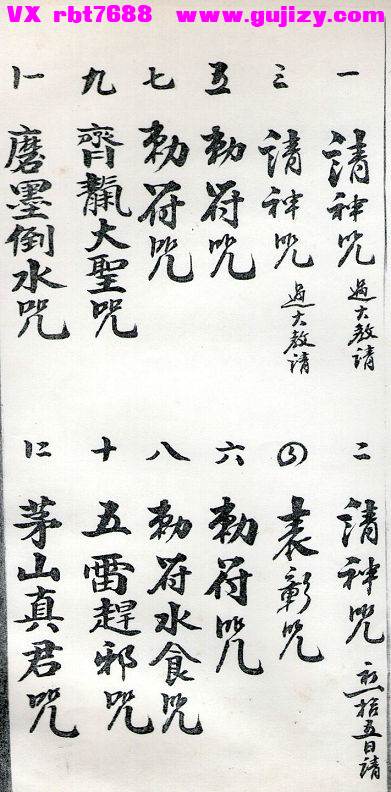 VX rbt7688 www.gujizy.com
一 請神咒 過大教請
二 請神咒 初一拾五日請
三 請神咒 過大教請
四 表彰咒
五 勅符咒
六 勅符咒
七 勅符咒
八 勅符水食咒
九 齊靝大聖咒
十 五雷趕邪咒
十一 磨墨倒水咒
十二 茅山真君咒